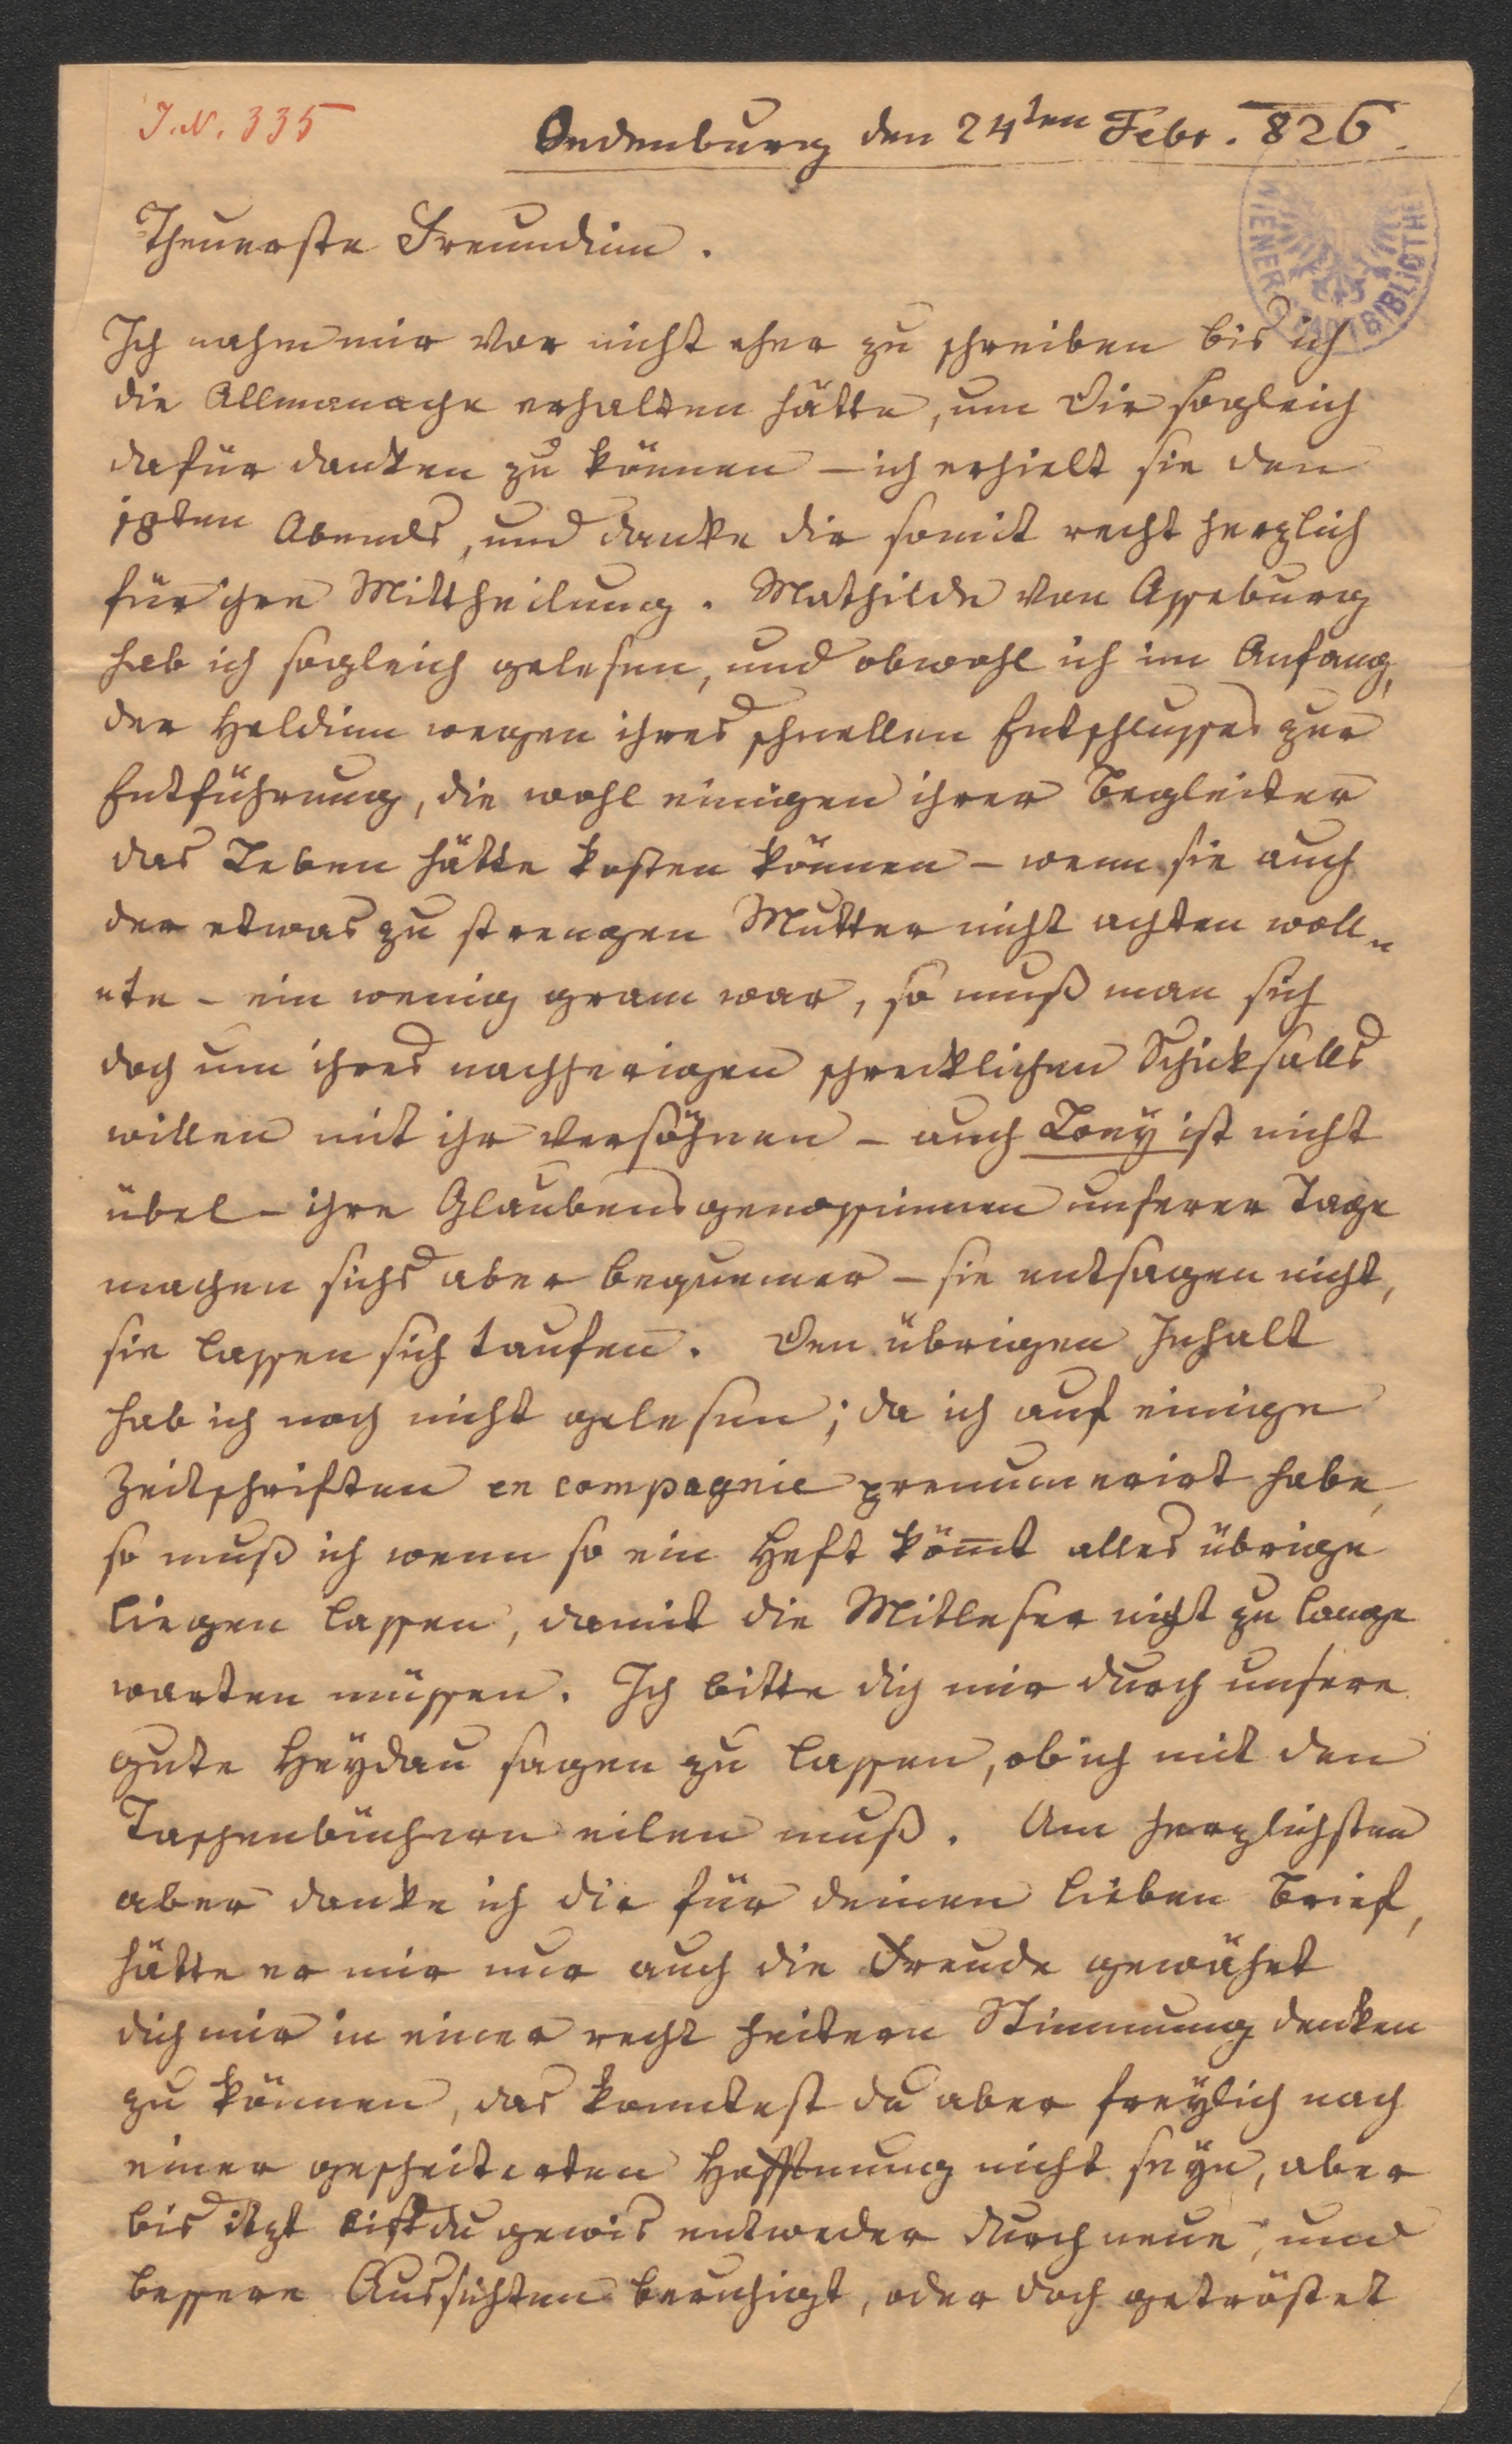 J. N. 335
Oedenburg den 24ten Febr. 826.
WIENER STADTBIBLIOTHEK
Theuerste Freundinn.
Ich nahm mir vor nicht eher zu schreiben bis ich
die Allmanache erhalten hätte, um Dir sogleich
dafür danken zu können – ich erhielt sie den
18ten Abends, und danke dir somit recht herzlich
für ihre Mittheilung. Mathilde von Asseburg
hab ich sogleich gelesen, und obwohl ich im Anfang,
der Heldinn wegen ihres schnellen Entschlusses zur
Entführung, die wohl einigen ihrer Begleiter
das Leben hätte kosten können – wenn sie auch
der etwas zu strengen Mutter nicht achten woll„
ete – ein wenig gram war, so muß man sich
doch um ihres nachherigen schrecklichen Schicksalls
willen mit ihr versöhnen – auch Zoey ist nicht
übel – ihre Glaubensgenossinnen unserer Tage
machen sichs aber bequemer – sie entsagen nicht,
sie lassen sich taufen. Den übrigen Inhalt
hab ich noch nicht gelesen; da ich auf einige
Zeitschriften en compagnie prenumerirt habe,
so muß ich wenn so ein Heft köm̅t alles übrige
liegen lassen, damit die Mitleser nicht zu lange
warten müssen. Ich bitte dich mir durch unsere
gute Heÿdau sagen zu lassen, ob ich mit den
Taschenbüchern eilen muß. Am herzlichsten
aber danke ich dir für deinen lieben Brief,
hätte er mir nur auch die Freude gewährt
dich mir in einer recht heitern Stimmung denken
zu können, das konntest du aber freÿlich nach
einer gescheiterten Hoffnung nicht seÿn, aber
bis itzt bist du gewis entweder durch neue, und
bessere Aussichten beruhigt, oder doch getröstet